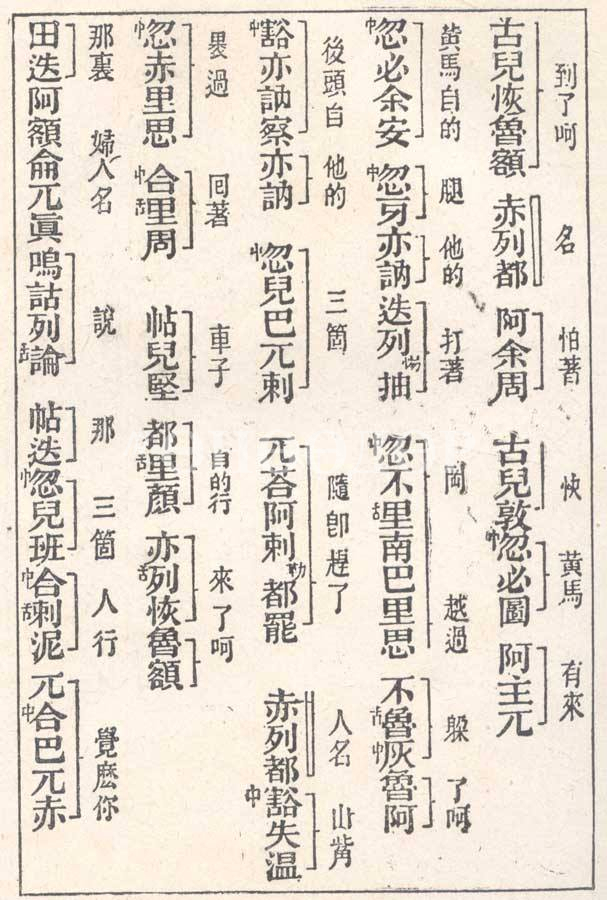 到了呵 名 怕著 快 黃馬 有來
古兒恢魯額 赤列都 阿余周 古兒敦中忽必圖 阿主兀
黃馬自的 腿 他的 打著 岡 越過 躱 了呵
中忽必余安 中忽牙亦訥 迭列惕抽 中忽不舌里南巴里思 不舌魯中灰魯阿
後頭自 他的 三箇 隨卽趕了 人名 山觜
中豁亦訥察亦訥 中忽兒巴兀剌 兀荅阿剌勒都罷 赤列都中豁失溫
過 囘著 車子 自的行 來了呵
中忽赤里思 中合舌里周 帖兒堅 都舌里顏 亦舌列恢魯額
那裏 婦人名 說 那 三箇 人行 覺麽你
田迭阿額侖兀眞嗚詁列舌論 帖迭中忽兒班中合舌剌泥 兀中合巴兀赤